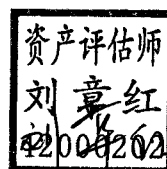 资产评估师
刘章红
42000262